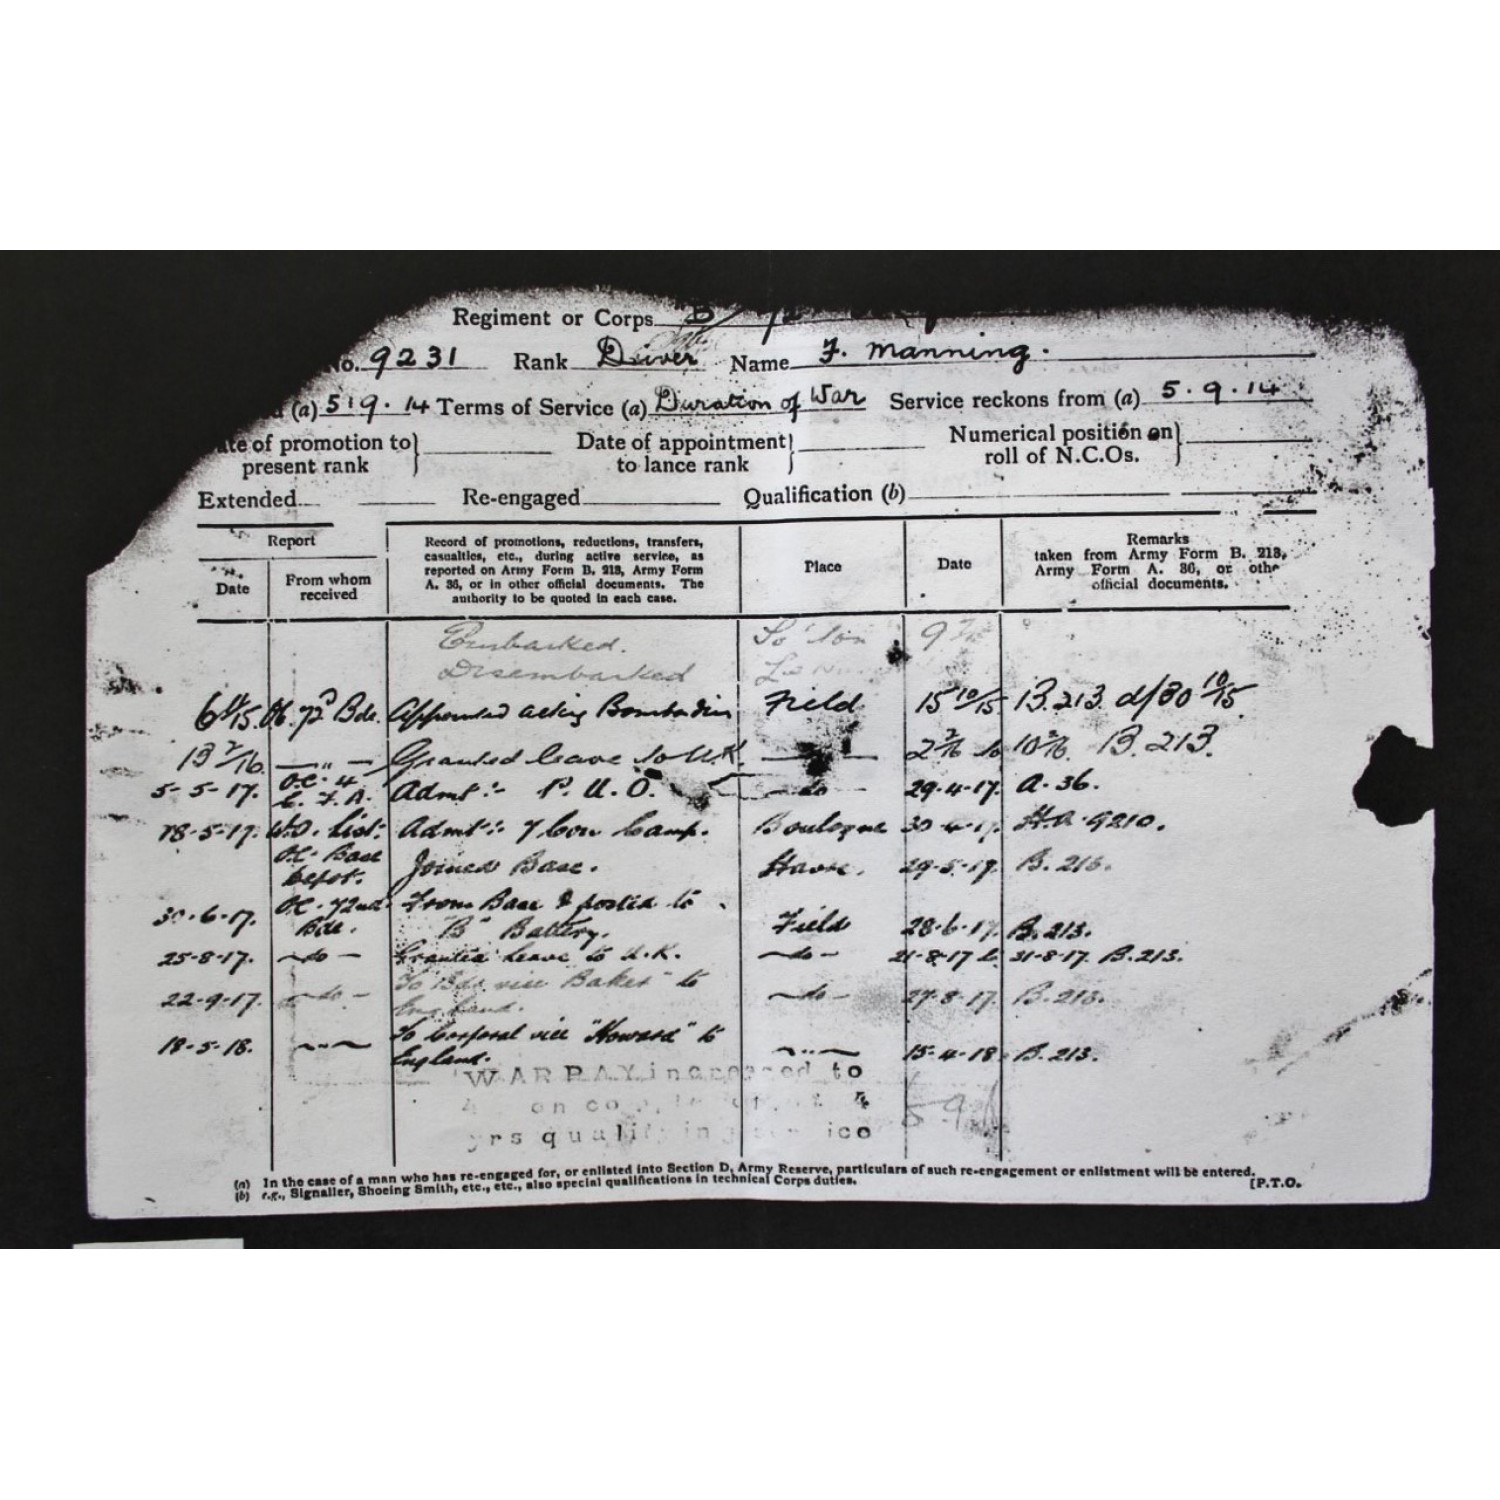 Regiment or Corps B/
No. 9231 Rank Driver Name F. Manning.
(a) 5.9.14 Terms of Service (a) Duration of War Service reckons from (a) 5.9.14
te of promotion to present rank Date of appointment to lance rank Numerical position on roll of N.C.Os.
Extended Re-engaged Qualification (b)
Report
Date
From whom received
Record of promotions, reductions, transfers, casualties, etc., during active service, as reported on Army Form B. 213, Army Form A. 36, or in other official documents. The authority to be quoted in each case.
Place
Date
Remarks taken from Army Form B. 213, Army Form A. 36, or othe official documents.
Embarked. So'ton 9
Disembarked
6 /15 72 Bde. Appointed acting Bombadier Field 15 10/15 B.213 d/30 10/15
13 2/16 — " — Granted leave to U.K. 2 2/16 to 10 2/16 B.213.
5-5-17. O.C. 4 C.F.A. Admt:- P.U.O. —do— 29-4-17. A.36.
18-5-17. W.O. List: Admt:- 7 Con Camp. Boulogne 30-4-17 H.A. 9210.
O.C. Base Depot. Joined Base. Havre. 29-5-17. B.213.
30-6-17. O.C. 72nd Bde. From Base & posted to "B" Battery. Field 28-6-17. B.213.
25-8-17. —do— Granted leave to U.K. —do— 21-8-17 to 31-8-17. B.213.
22-9-17. —do— To Bdr vice Baker to England. —do— 27-8-17. B.213.
18-5-18. — " — To Corporal vice "Howard" to England. — " — 15-4-18. B.213.
WAR PAY increased to
4 on completion of 4
yrs qualifying service
(a) In the case of a man who has re-engaged for, or enlisted into Section D, Army Reserve, particulars of such re-engagement or enlistment will be entered.
(b) e.g., Signaller, Shoeing Smith, etc., etc., also special qualifications in technical Corps duties. [P.T.O.